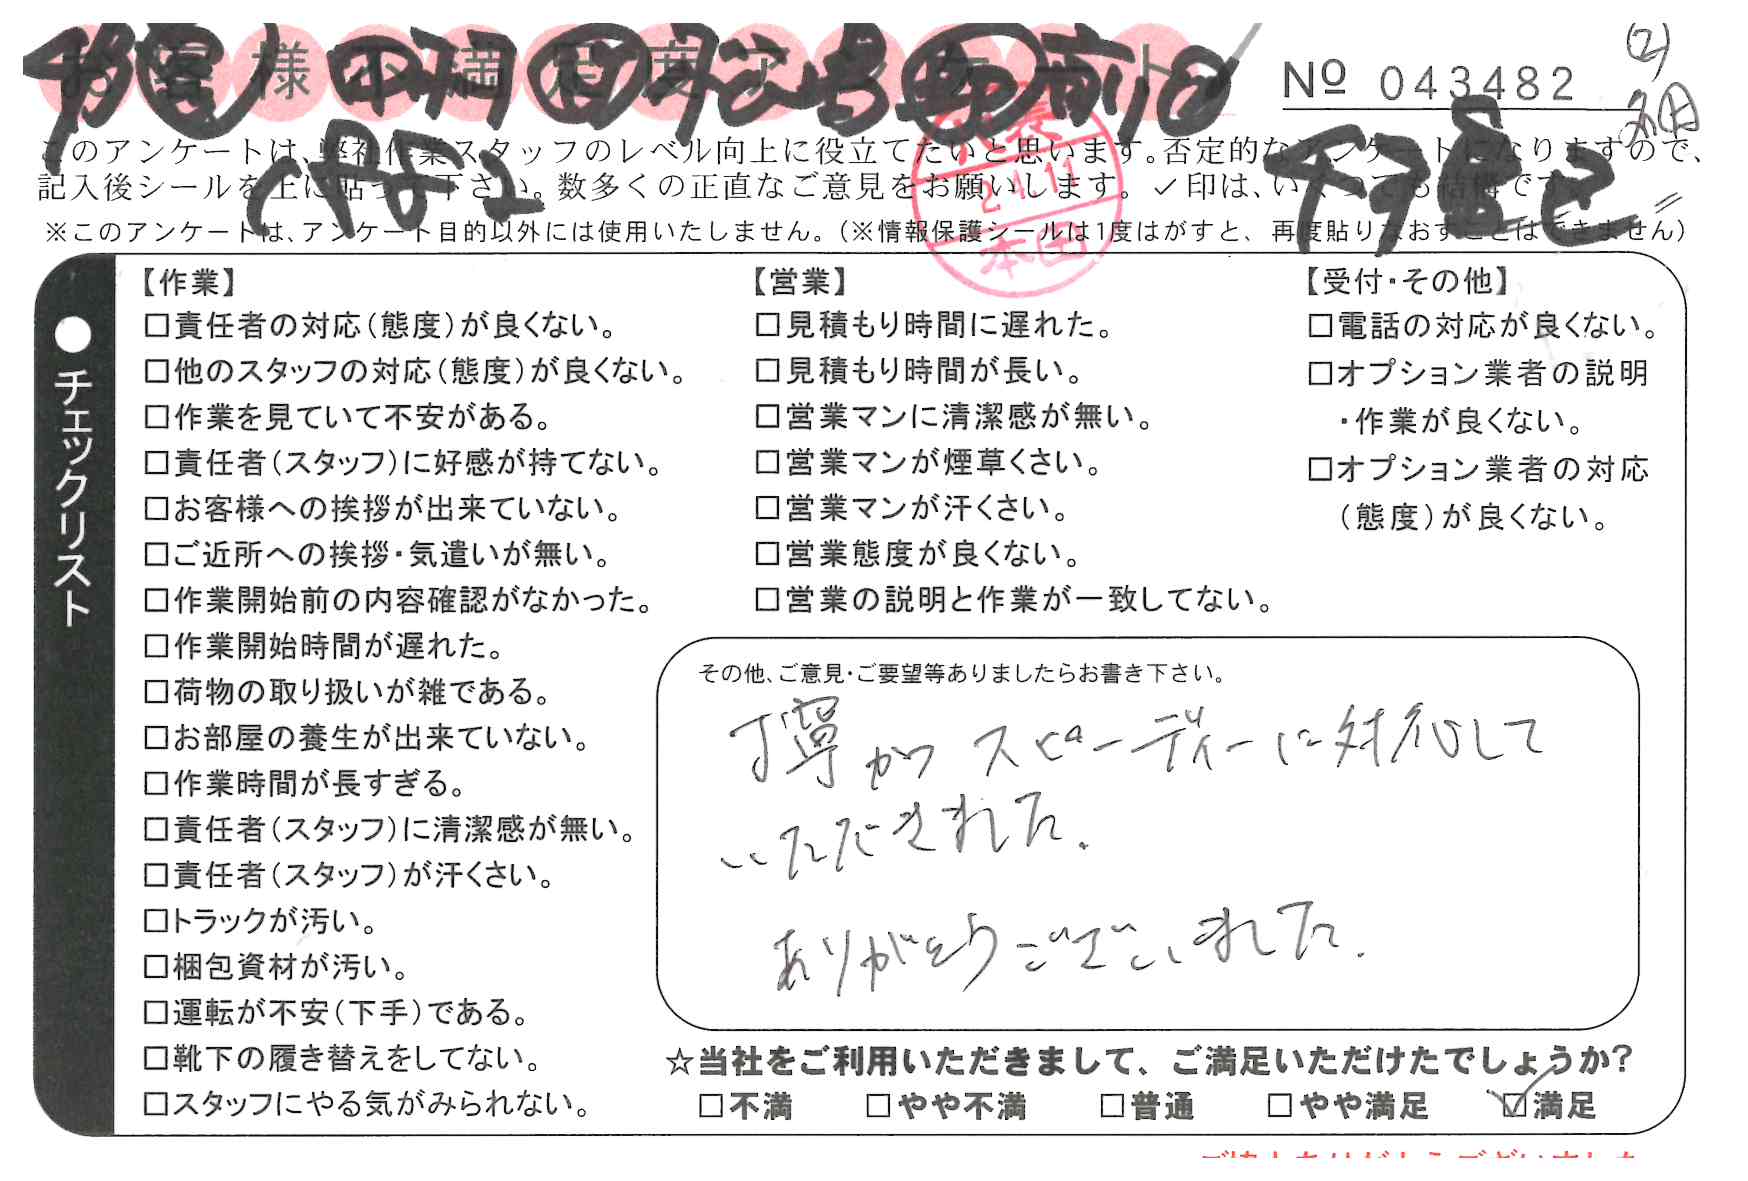 お客様不満足度アンケート
No 043482
このアンケートは、弊社作業スタッフのレベル向上に役立てたいと思います。否定的なアンケートになりますので、
記入後シールを上に貼って下さい。数多くの正直なご意見をお願いします。✓印は、いくつでも結構です。
※このアンケートは、アンケート目的以外には使用いたしません。（※情報保護シールは1度はがすと、再度貼りなおすことはできません）
21.11
本田
●チェックリスト
【作業】
□責任者の対応（態度）が良くない。
□他のスタッフの対応（態度）が良くない。
□作業を見ていて不安がある。
□責任者（スタッフ）に好感が持てない。
□お客様への挨拶が出来ていない。
□ご近所への挨拶・気遣いが無い。
□作業開始前の内容確認がなかった。
□作業開始時間が遅れた。
□荷物の取り扱いが雑である。
□お部屋の養生が出来ていない。
□作業時間が長すぎる。
□責任者（スタッフ）に清潔感が無い。
□責任者（スタッフ）が汗くさい。
□トラックが汚い。
□梱包資材が汚い。
□運転が不安（下手）である。
□靴下の履き替えをしてない。
□スタッフにやる気がみられない。
【営業】
□見積もり時間に遅れた。
□見積もり時間が長い。
□営業マンに清潔感が無い。
□営業マンが煙草くさい。
□営業マンが汗くさい。
□営業態度が良くない。
□営業の説明と作業が一致してない。
【受付・その他】
□電話の対応が良くない。
□オプション業者の説明
・作業が良くない。
□オプション業者の対応
（態度）が良くない。
その他、ご意見・ご要望等ありましたらお書き下さい。
丁寧かつスピーディーに対応して
いただきました。
ありがとうございました。
☆当社をご利用いただきまして、ご満足いただけたでしょうか？
□不満 □やや不満 □普通 □やや満足 ☑満足